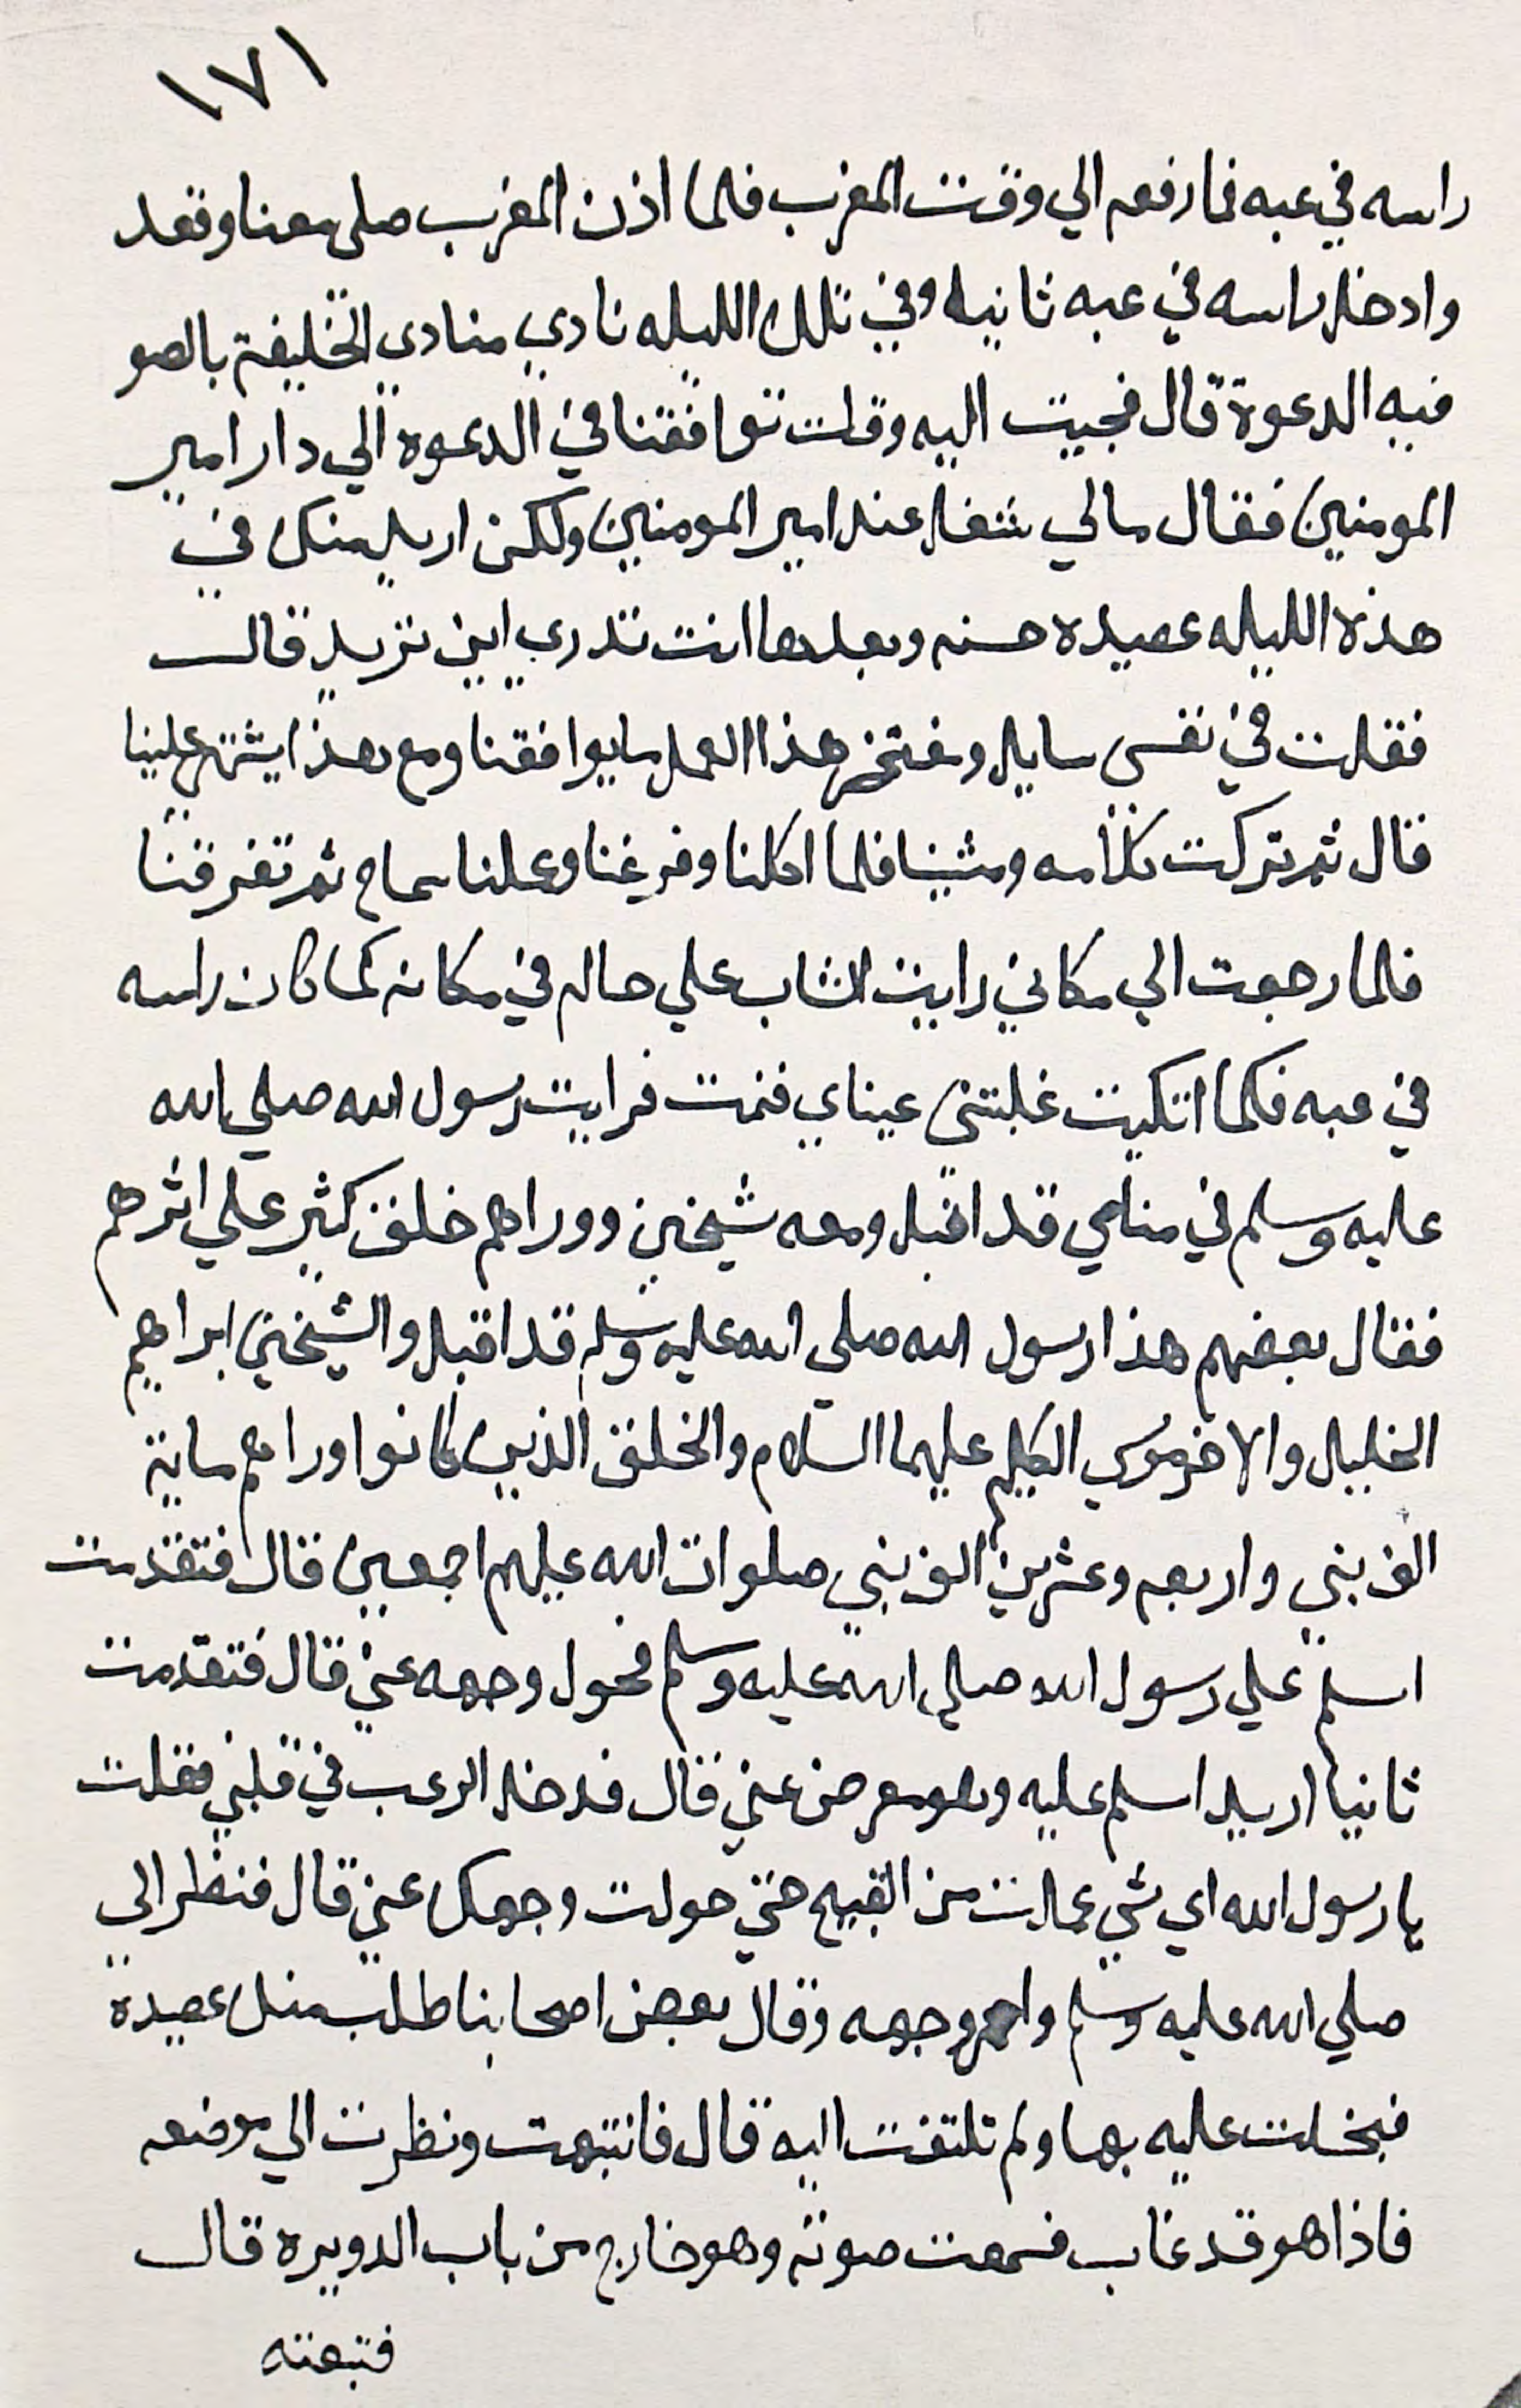 ١٧١
راسه في عبه فما رفعه الي وقت المغرب فلما اذن المغرب صلى معنا وقعد
وادخل راسه في عبه ثانيه وفي تلك الليله نادي منادي الخليفة بالصو
فيه الدعوة قال فجيت اليه وقلت توافقنا في الدعوه الي دار امير
المومنين فقال مالي شغل عند امير المومنين ولكن اريد منك في
هذه الليله عصيده حسنه وبعدها انت تدري اين تريد قال
فقلت في نفسي سايل ومفتخر هذا العمل مايوافقنا ومع هذا يشتهي علينا
قال ثم تركت كلامه ومشينا فلما اكلنا وفرغنا وعملنا سماع ثم تفرقنا
فلما رجعت الي مكاني رايت الشاب علي حاله في مكانه كما كان راسه
في عبه فكما اتكيت غلبتني عيناي فنمت فرايت رسول الله صلي الله
عليه وسلم في منامي قد اقبل ومعه شيخين ووراهم خلق كثير علي اثرهم
فقال بعضهم هذا رسول الله صلي الله عليه وسلم قد اقبل والشيخين ابراهيم
الخليل والاخر موسي الكليم عليهما السلام والخلق الذين كانوا وراهم ماية
الف نبي واربعه وعشرين الف نبي صلوات الله عليهم اجمعين قال فتقدمت
اسلم علي رسول الله صلي الله عليه وسلم فحول وجهه عني قال فتقدمت
ثانيا اريد اسلم عليه وهو معرض عني قال فدخل الرعب في قلبي فقلت
يا رسول الله اي شي عملت من القبيح حتي حولت وجهك عني قال فنظر الي
صلي الله عليه وسلم واحمر وجهه وقال بعض اصحابنا طلب منك عصيدة
فبخلت عليه بها ولم تلتفت اليه قال فانتبهت ونظرت الي موضعه
فاذا هو قد غاب فسمعت صوته وهو خارج من باب الدويره قال
فتبعته